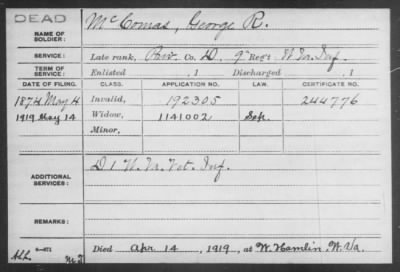 DEAD
NAME OF SOLDIER: McComas, George R.
SERVICE: Late rank, Priv. Co. D, 9" Reg't W. Va. Inf.
TERM OF SERVICE: Enlisted , 1 Discharged , 1
DATE OF FILING. CLASS. APPLICATION NO. LAW. CERTIFICATE NO.
1874 May 4 Invalid, 192305 244776
1919 May 14 Widow, 1141002 Sep.
Minor,
ADDITIONAL SERVICES: D 1 W. Va. Vet. Inf.
REMARKS:
Died Apr. 14 , 1919, at W. Hamlin, W. Va.
6—871